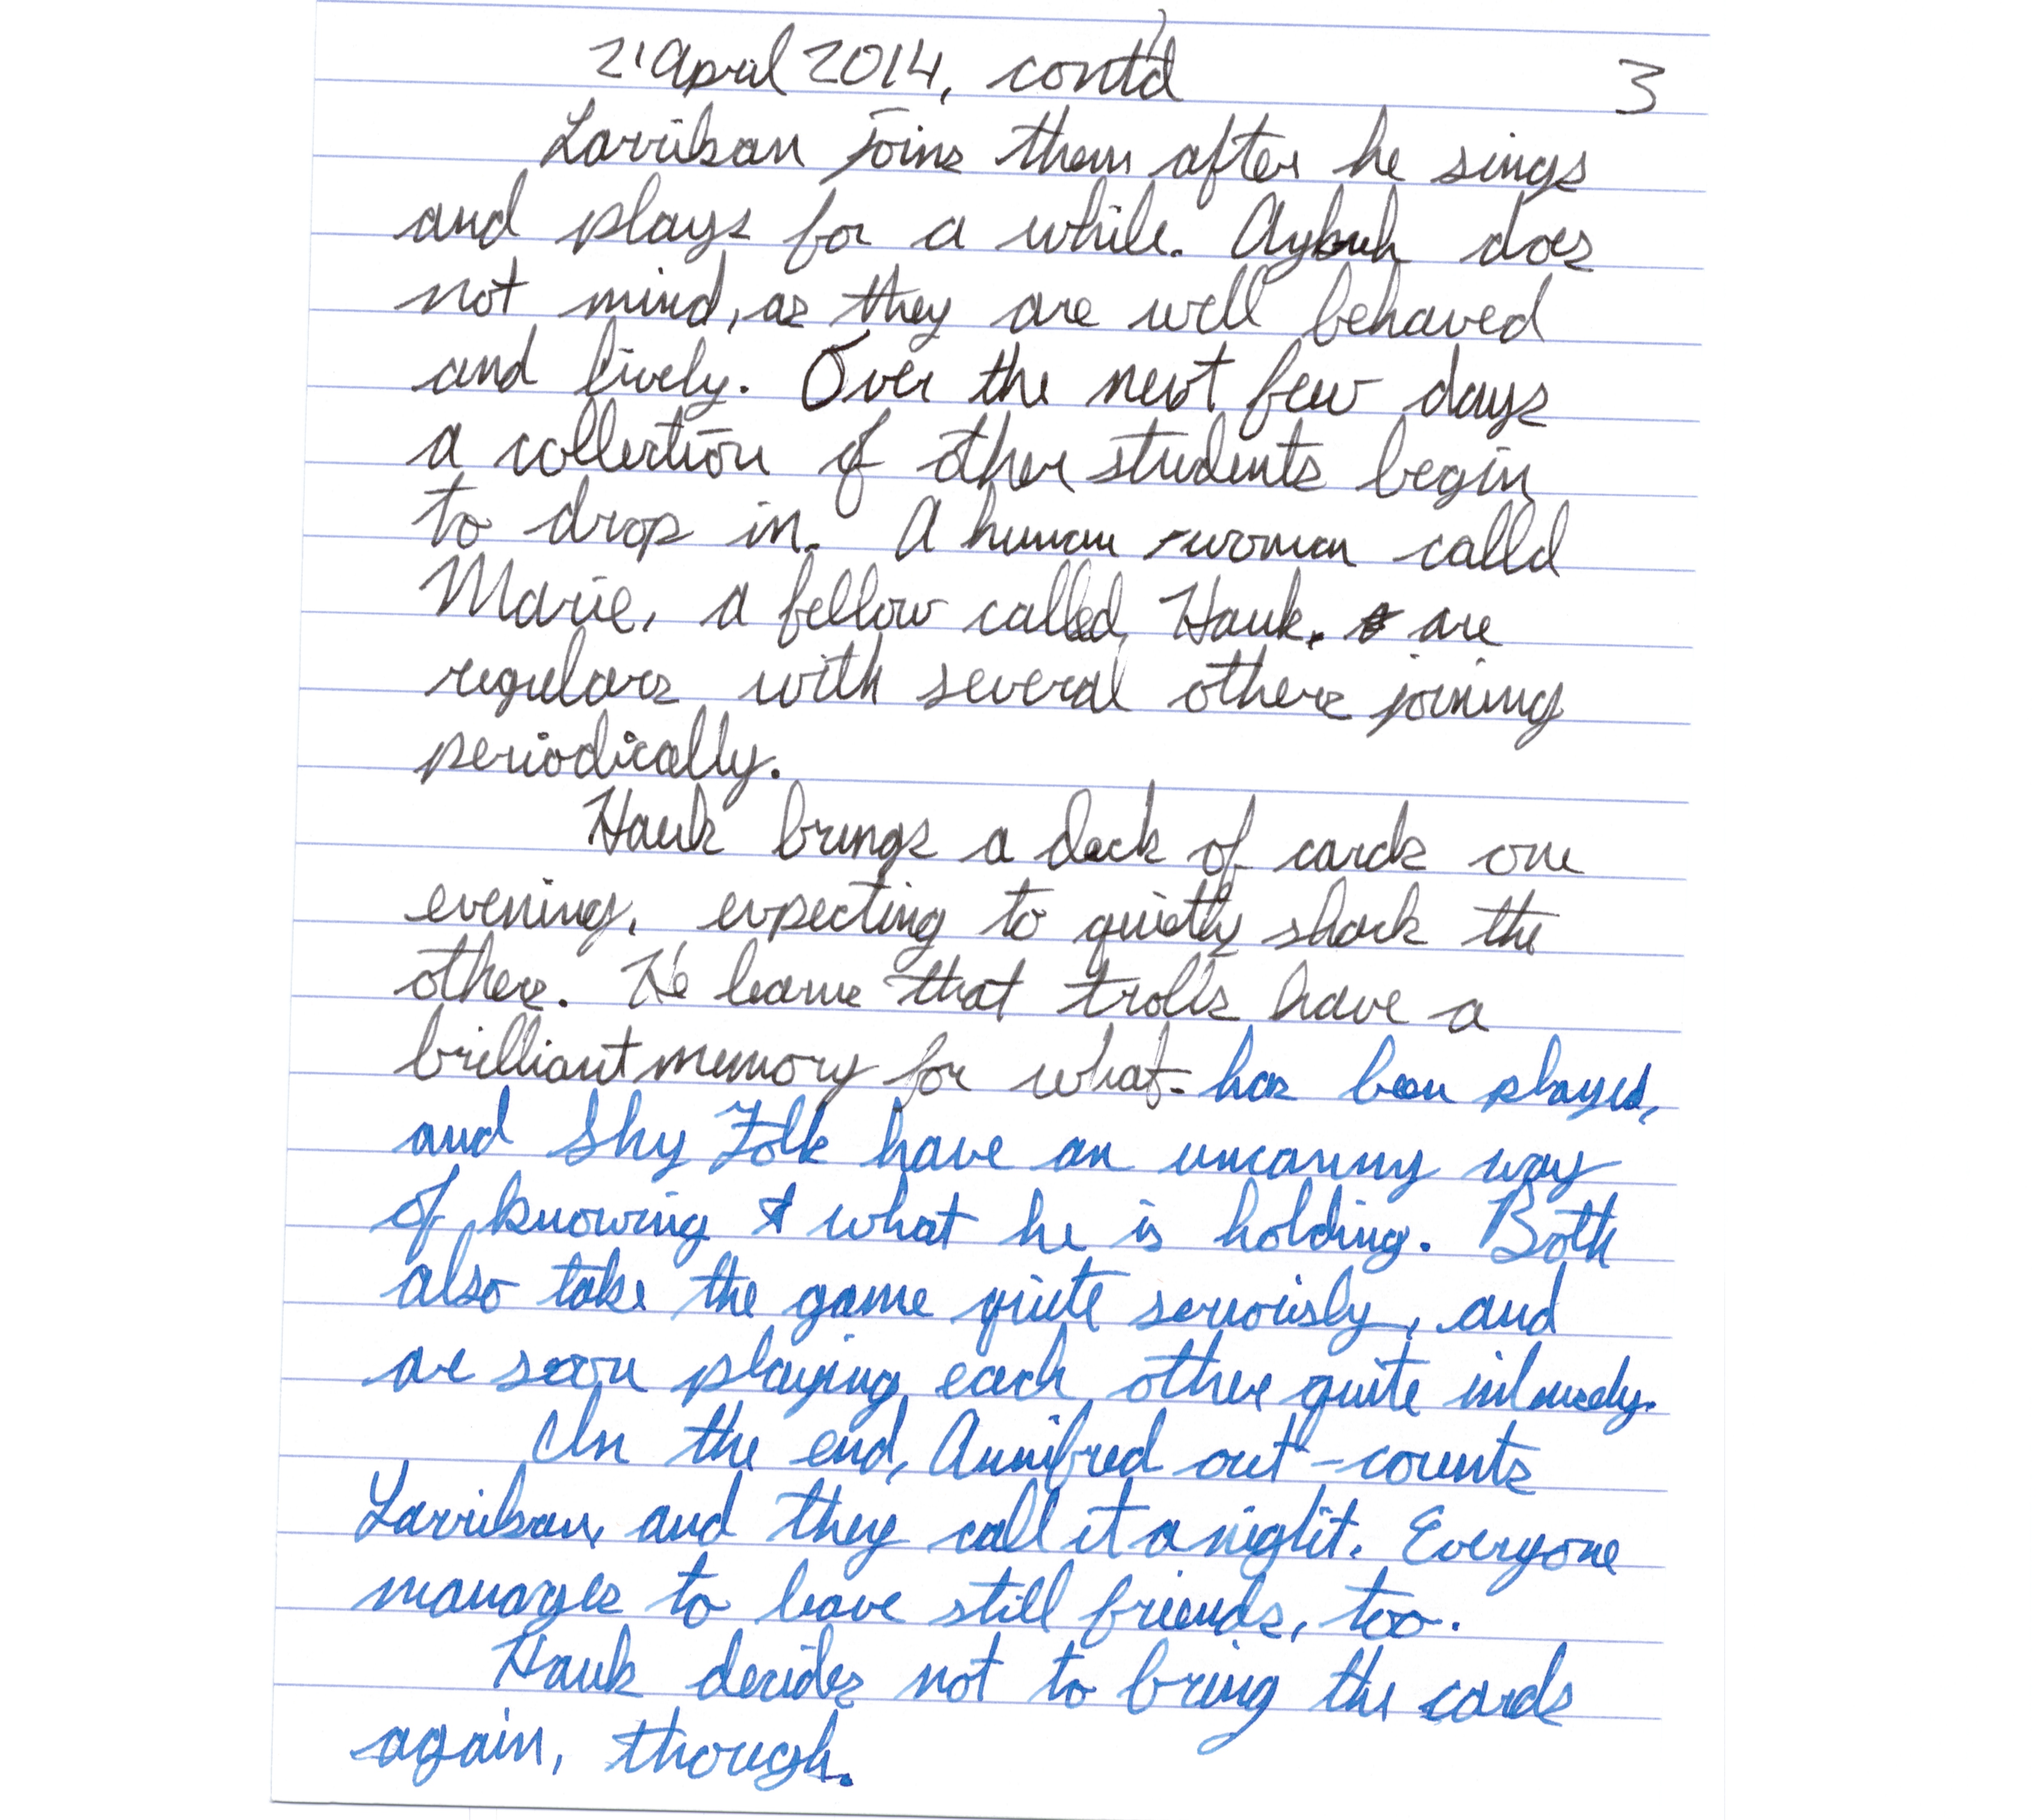 2 April 2014, cont'd 3
Larriban joins them after he sings
and plays for a while. Aybuh does
not mind, as they are well behaved
and lively. Over the next few days
a collection of other students begin
to drop in. A human woman calld
Marie, a fellow called Hauk, are
regulars with several others joining
periodically.
Hauk brings a deck of cards one
evening, expecting to quietly shark the
others. He learns that trolls have a
brilliant memory for what has been played,
and Shy Folk have an uncanny way
of knowing what he is holding. Both
also take the game quite seriously, and
are soon playing each other quite
In the end, Aunifred out-counts
Larriban, and they call it a night. Everyone
manages to leave still friends, too.
Hauk decides not to bring the cards
again, though.